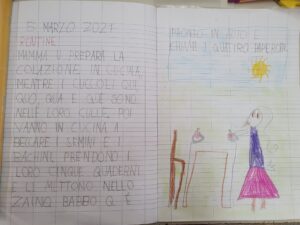 5 MARZO 2021
ROUTINE
MAMMA U PREPARA LA
COLAZIONE IN CUCINA
MENTRE I CUCCIOLI QUI
QUO, QUA E QUE SONO
NELLE LORO CULLE. POI
VANNO IN CUCINA A
BECCARE I SEMINI E I
BACHINI. PRENDONO I
LORO CINQUE QUADERNI
E LI METTONO NELLO
ZAINO. BABBO Q È
PRONTO IN AUTO E
CHIAMA I QUATTRO PAPEROTTI